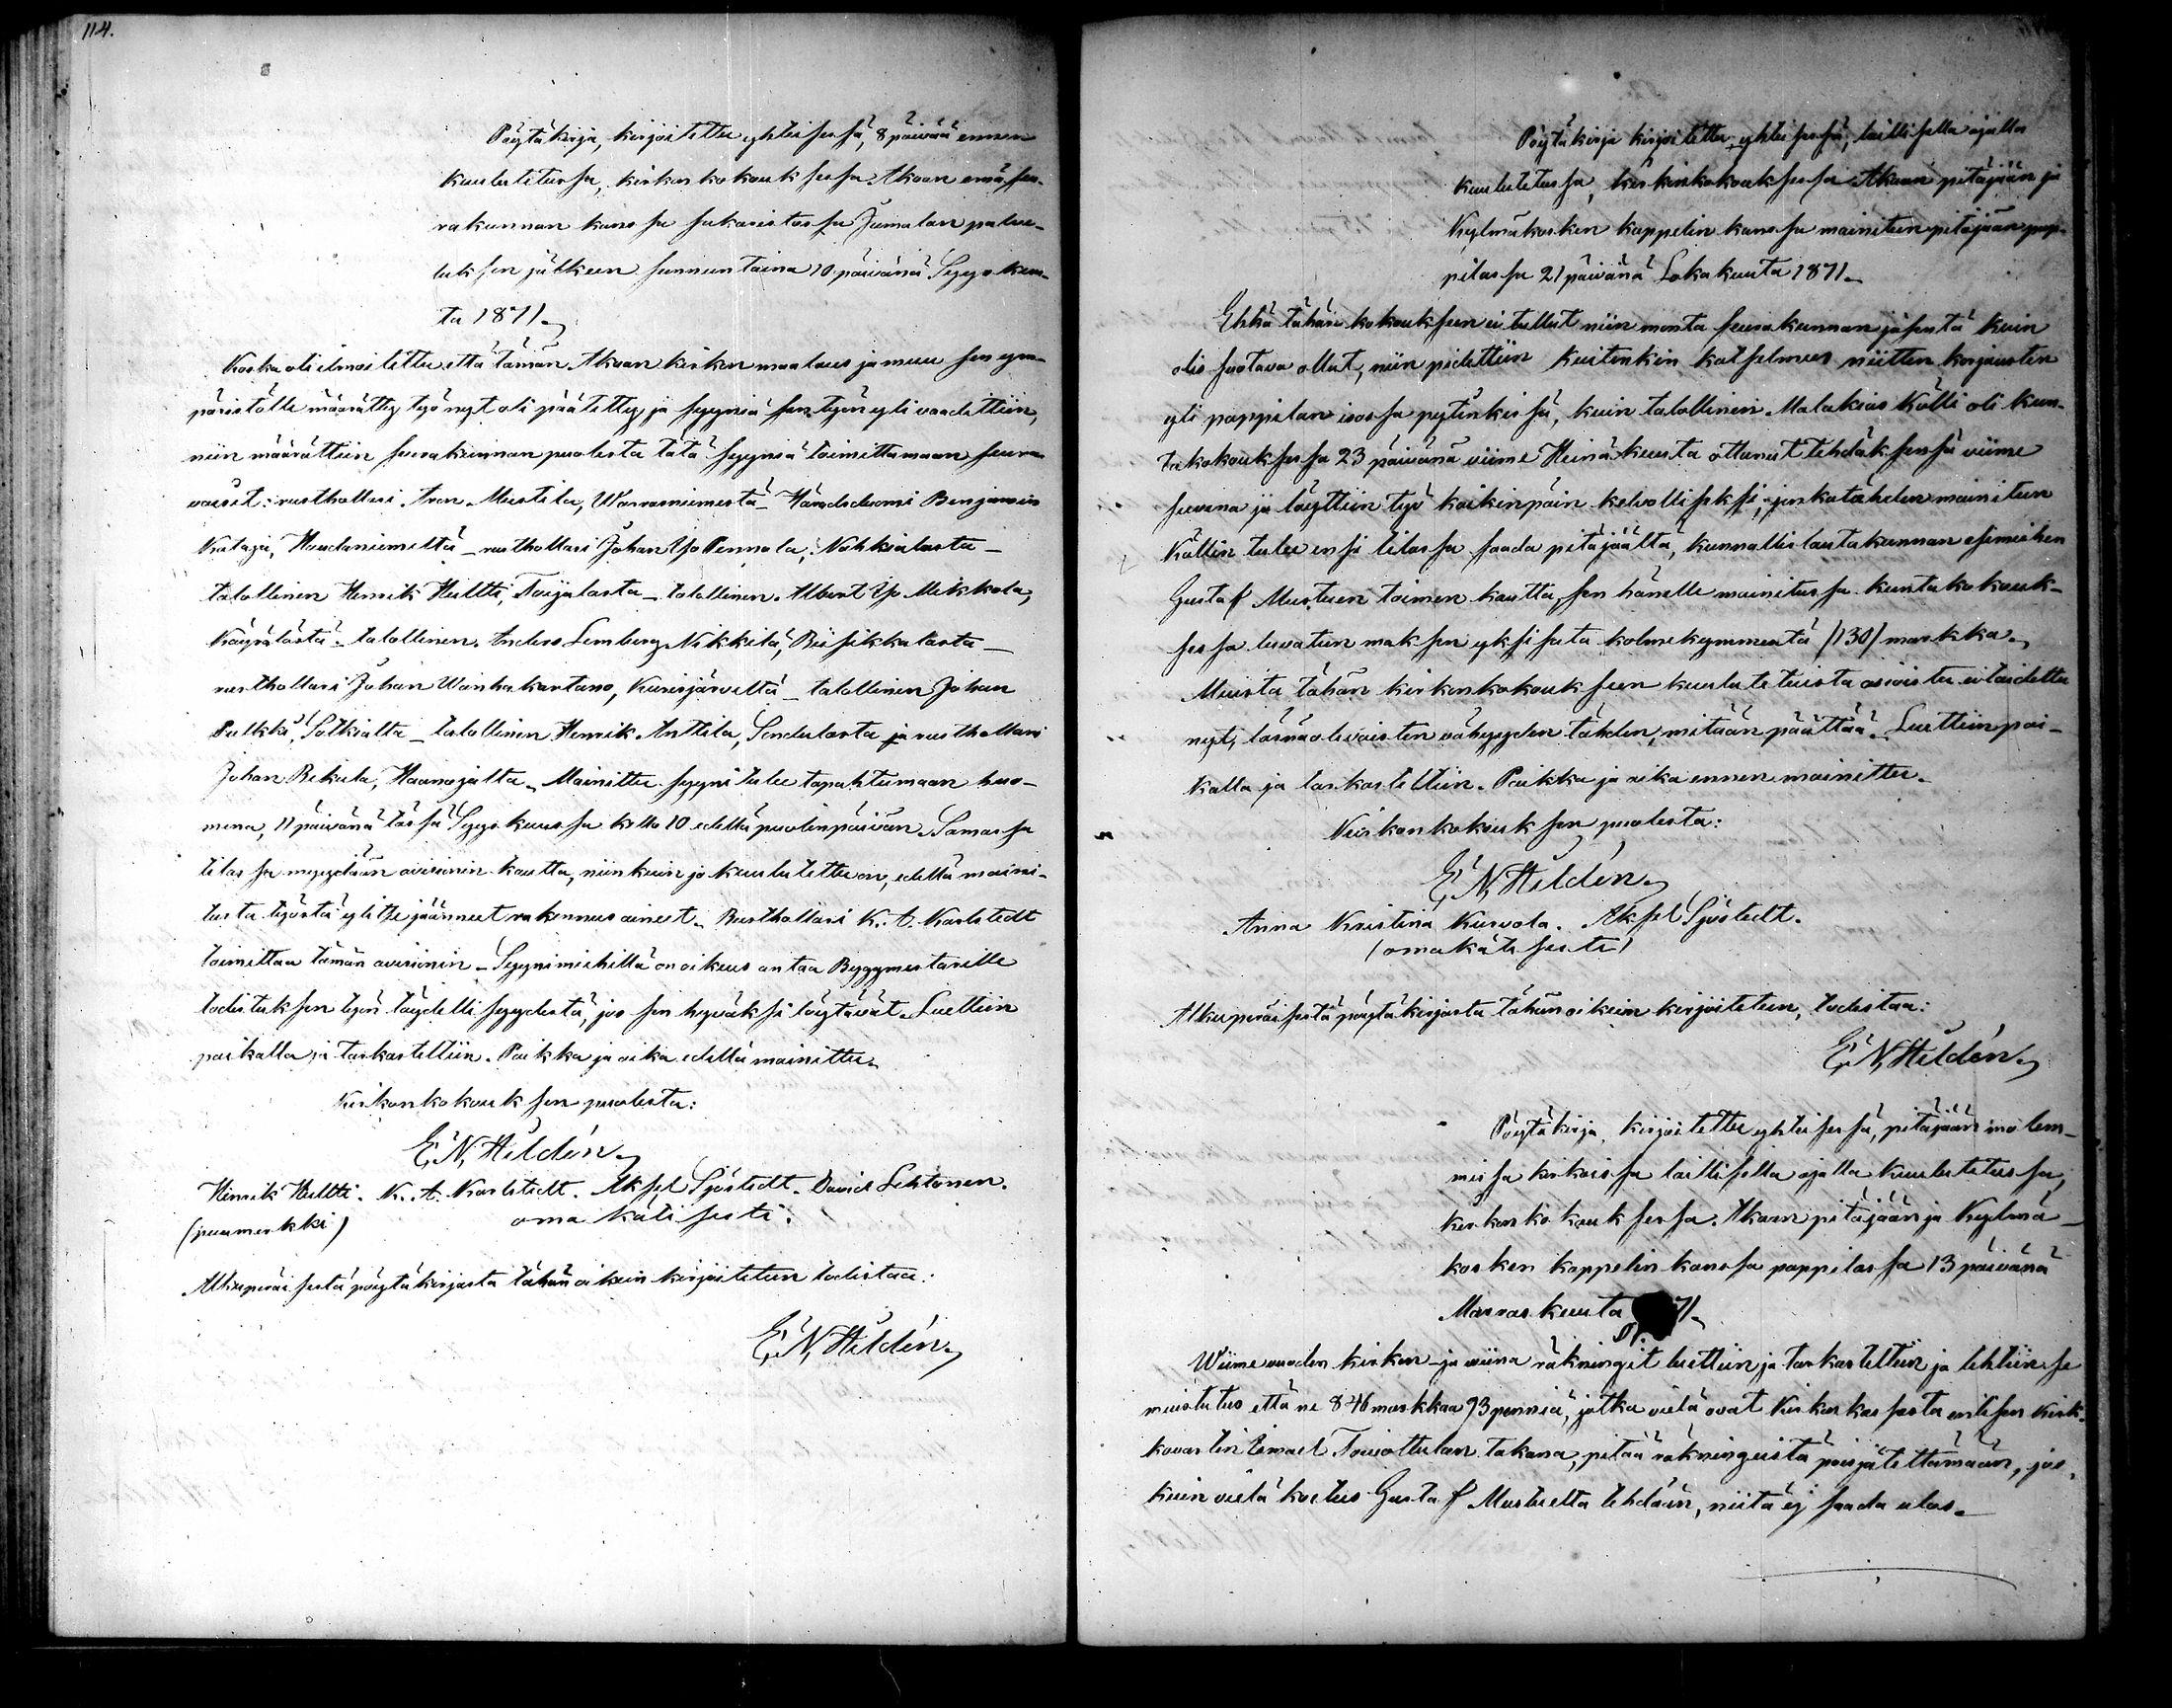 114.
Pöytäkirja, kirjoitettu yhteisessä, 8 päivää ennen
kuulutetussa, kirkonkokouksessa Akaan emäseu-
rakunnan kanssa sakaristossa Jumalan palve-
luksen jälkeen sunnuntaina 10 päivänä Syyskuu-
ta 1871.
Koska oli ilmoitettu että tämän Akaan kirkon maalaus ja muu sen ym-
päristölle määrätty työ nyt oli päätetty, ja syyniä sen työn yli vaadittiin,
niin määrättiin seurakunnan puolesta tätä syyniä toimittamaan seura-
vaiset: rusthollari Ivan Mustila, Warrasniemestä - Handelsmanni Benjamin
Kataja, Haudaniemeltä - rusthollari Johan Yso Pennola, Nahkialasta -
talollinen Henrik Hultti, Toijalasta - talollinen Albert Yso Mikkola,
Käynälästä - talollinen Anders Lemberg Nikkilä, Riisikkalasta -
rusthollari Johan Wanhakartano, Kurisjärveltä - talollinen Johan
Pulkki, Sotkialta - talollinen Henrik Anttila, Sondulasta ja rusthollari
Johan Rekula, Haanojalta. Mainittu syyni tulee tapahtumaan huo-
menna, 11 päivänä tässä Syyskuussa kello 10 edellä puolenpäivän. Samassa
tilassa myydään auisionin kautta, niinkuin jo kuulutettu on, edellä maini-
tusta työstä ylitse jääneet rakennusaineet. Rusthollari K. A. Karlstedt
toimittaa tämän auisionin. Syynimiehillä on oikeus antaa Byggmestarille
todistuksen työn täydellisyydestä, jos sen hyväksi löytävät. Luettiin
paikalla ja tarkastettiin. Paikka ja aika edellä mainittu.
Kirkonkokouksen puolesta:
E. N. Hildén.
Hinrik Hultti. K. A. Karlstedt. Aksel Sjöstedt. David Lehtonen.
(puumerkki) omakätisesti.
Alkuperäisestä pöytäkirjasta tähän oikein kirjoitetun todistaa:
E. N. Hildén.
Pöytäkirja kirjoitettu yhteisessä, laillisella ajalla
kuulutetussa, kirkonkokouksessa Akaan pitäjään ja
Kylmäkosken kappelin kanssa mainitun pitäjään pap-
pilassa 21 päivänä Lokakuuta 1871.
Ehkä tähän kokoukseen ei tullut niin monta seurakunnan jäsentä kuin
olis suotava ollut, niin pidettiin kuitenkin katselmus niitten korjausten
yli pappilan isossa pytinkissä, kuin talollinen Malakias Källi oli kun-
takokouksessa 23 päivänä viime Heinäkuuta ottanut tehdäksensä viime
suvena ja löyttiin työ kaikinpäin kelvolliseksi, jonkatähden mainitun
Källin tulee ensi tilassa saada pitäjäältä, kunnallislautakunnan esimiehen
Gustaf Mustuen toimen kautta, sen hänelle mainitussa kuntakokouk-
sessa luvatun maksen yksi sata kolmekymmentä /130/ markkaa.
Muista tähän kirkonkokoukseen kuulutetuista asioista ei taidettu
nyt, läsnäolevaisten vähyyden tähden, mitään päättää. Luettiin pai-
kalla ja tarkastettiin. Paikka ja aika ennen mainittu.
Kirkonkokouksen puolesta:
E. N. Hildén.
Anna Kristina Kurvola. Aksel Sjöstedt.
(omakätisesti)
Alkuperäisestä pöytäkirjasta tähän oikein kirjoitetun, todistaa:
E. N. Hildén.
Pöytäkirja kirjoitettu yhteisessä, pitäjään molem-
missa kirkoissa laillisella ajalla kuulutetussa,
kirkonkokouksessa Akaan pitäjään ja Kylmä-
kosken kappelin kanssa pappilassa 13 päivänä
Marraskuuta 71.
Wiime vuoden kirkon- ja viina räkningit luettiin ja tarkastettiin ja tehtiin se
muistutus että ne 846 markkaa 93 penniä, jotka vielä ovat Kirkonkassasta entisen kirk-
kovärtin Esmael Toivottulan takana, pitää räkningeistä poisjätettämään, jos,
kuin vielä koetus Gustaf Mustuelta tehdään, niitä ej saada ulos.